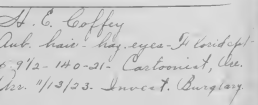 H. E. Coffey
Aub. hair - haz. eyes - Florid cpl -
5-9½ - 140 - 21 - Cartoonist, Occ.
Arr. 11/13/23. Invest. Burglary